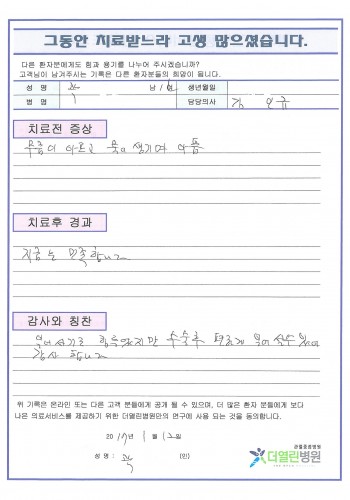 그동안 치료받느라 고생 많으셨습니다.
다른 환자분에게도 힘과 용기를 나누어 주시겠습니까?
고객님이 남겨주시는 기록은 다른 환자분들의 희망이 됩니다.
성 명 남 / 여 생년월일
병 명 담당의사 김
치료전 증상
무릎이 아프고 물이 생기며 아픔
치료후 경과
지금은 만족합니다
감사와 칭찬
걸어 힘들었지만 수술후 편하게
감사 합니다
위 기록은 온라인 또는 다른 고객 분들에게 공개 될 수 있으며, 더 많은 환자 분들에게 보다
나은 의료서비스를 제공하기 위한 더열린병원만의 연구에 사용 되는 것을 동의합니다.
2017년 1월 12일
성 명 : (인)
관절중점병원
더열린병원